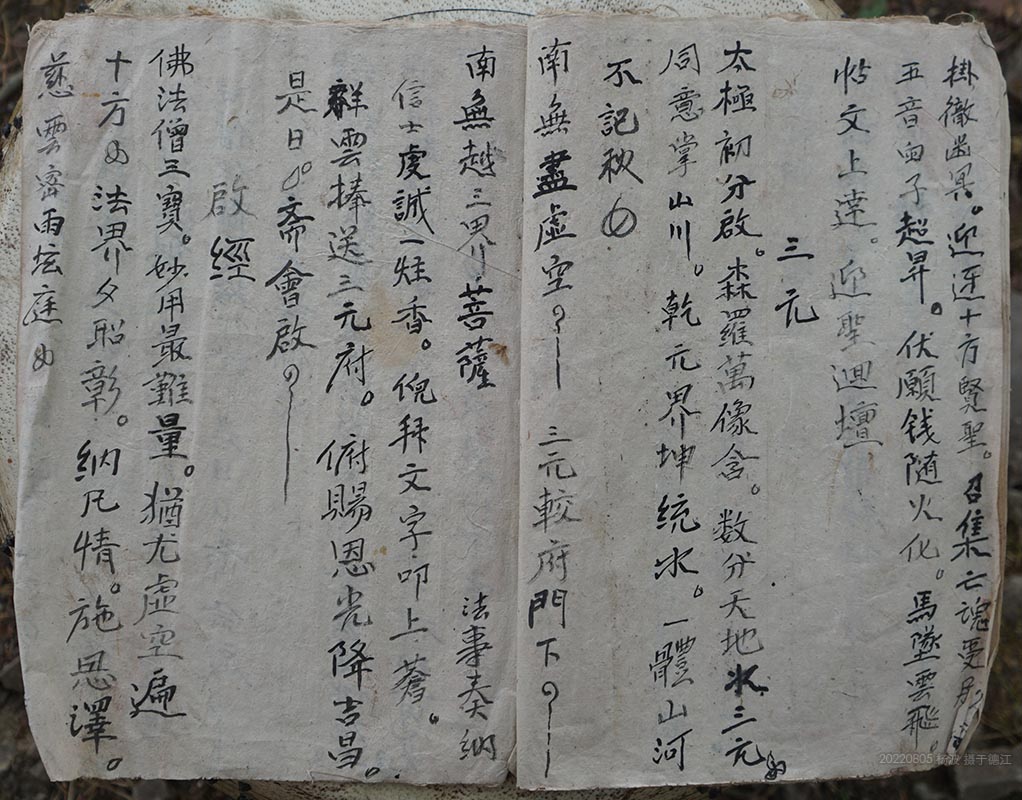 掛徹幽冥。迎迓十方賢聖。召集亡魂
五音面子超昇。伏願钱随火化。馬墜雲飛。
帖文上達。迎聖迴壇
三元
太極初分啟。森羅萬像含。数分天地水三元
同意掌山川。乾元界坤统水。一體山河
不記秋
南無盡虛空 三元較府門下
南無越三界菩薩 法事奏納
信士虔誠一炷香。倪拜文字叩上蒼。
群雲捧送三元府。俯賜恩光降吉昌。
是日 斋會啟
啟經
佛法僧三寶。妙用最難量。猶尤虛空遍
十方 法界夕昭彰。納凡情。施恩澤。
慈雲密雨坛庭
20220805 摄于德江